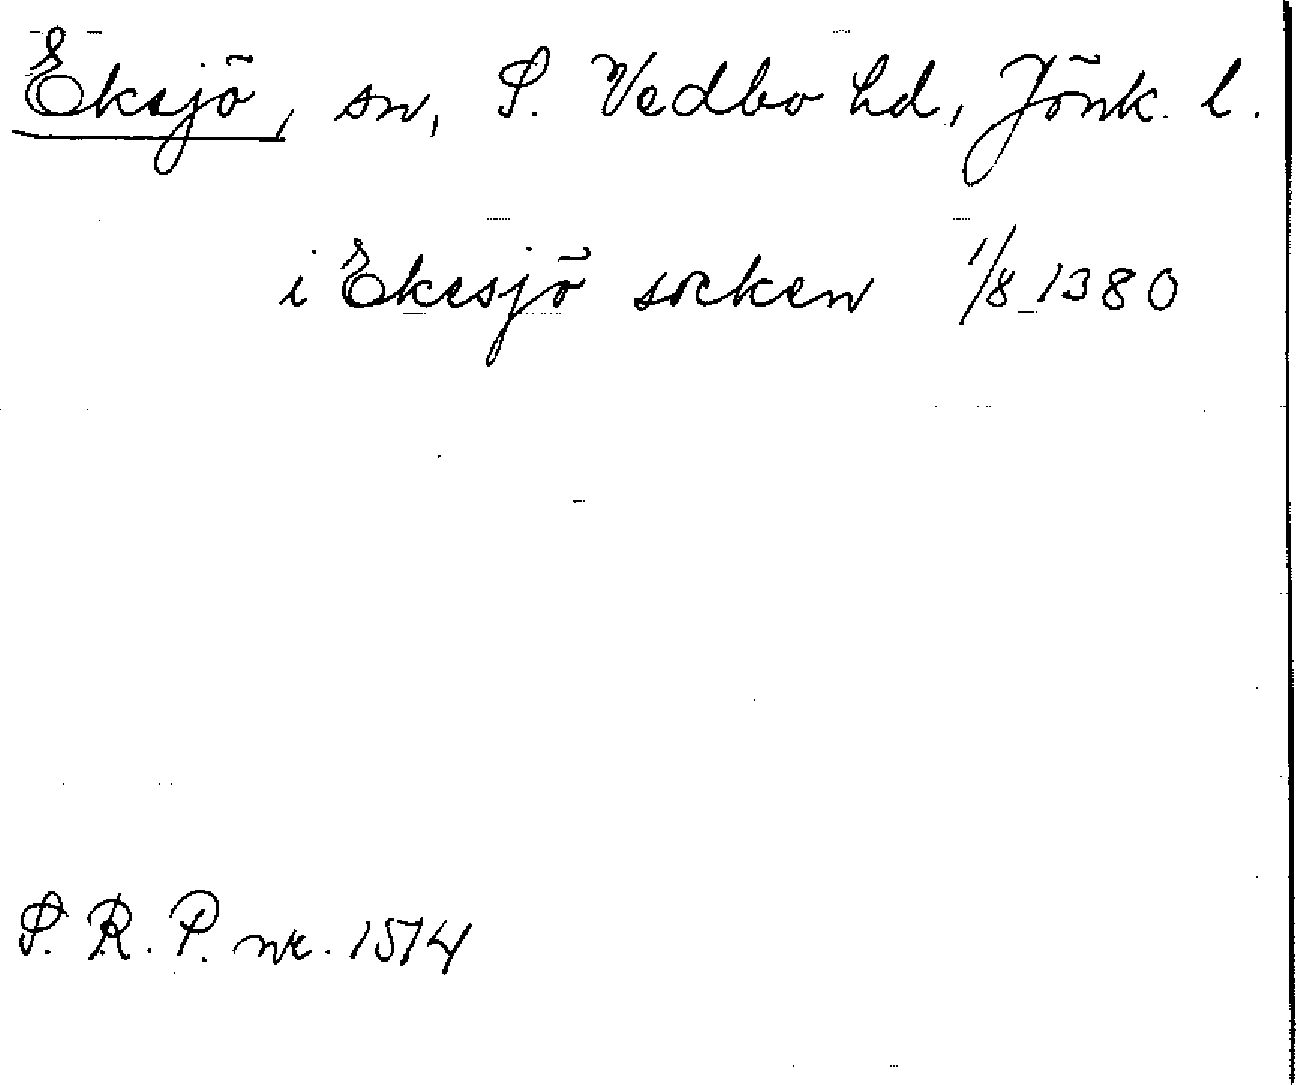 Eksjö, sn, S. Vedbo hd, Jönk. l.
i Ekesjö socken 1/8 1380
S. R. P. nr. 1574